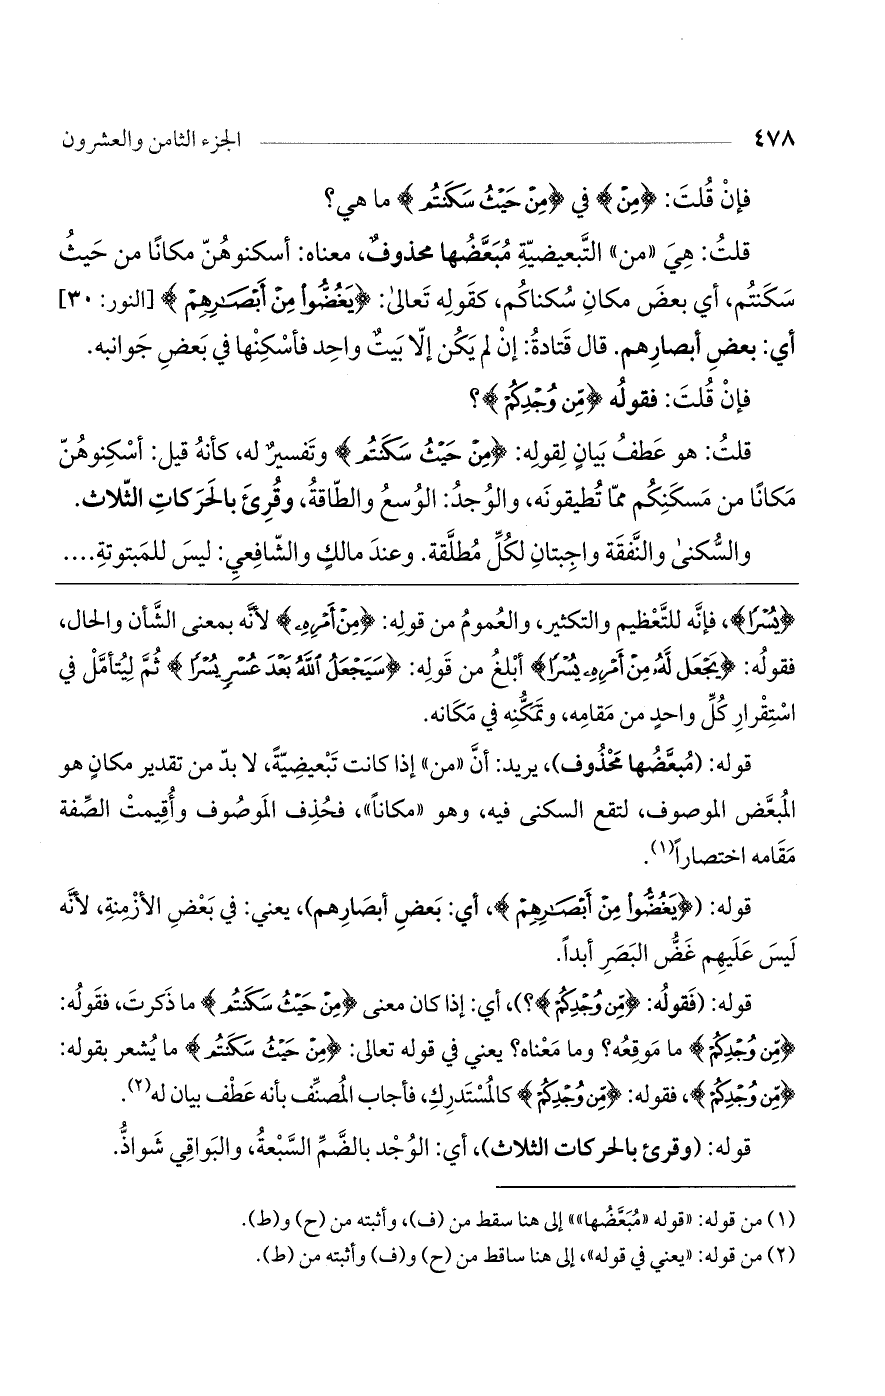 ٤٧٨ الجزء الثامن والعشرون
فإنْ قُلتَ: ﴿مِنْ﴾ في ﴿مِنْ حَيْثُ سَكَنتُم﴾ ما هي؟
قلتُ: هِيَ «من» التَّبعيضيّةِ مُبَعَّضُها محذوفٌ، معناه: أسكنوهُنّ مكانًا من حَيثُ
سَكَنتُم، أي بعضَ مكانِ سُكناكُم، كقَولِه تَعالىٰ: ﴿يَغُضُّوا۟ مِنْ أَبْصَـٰرِهِمْ﴾ [النور: ٣٠]
أي: بعضِ أبصارِهم. قال قَتادةُ: إنْ لم يَكُن إلّا بَيتٌ واحِد فأسْكِنْها في بَعضِ جَوانبه.
فإنْ قُلتَ: فقولُه ﴿مِّن وُجْدِكُمْ﴾؟
قلتُ: هو عَطفُ بَيانٍ لِقولِه: ﴿مِنْ حَيْثُ سَكَنتُم﴾ وتَفسيرٌ له، كأنهُ قيل: أسْكِنوهُنّ
مَكانًا من مَسكَنِكُم ممّا تُطيقونَه، والوُجدُ: الوُسعُ والطّاقةُ، وقُرِئَ بالحَرَكاتِ الثّلاث.
والسُّكنىٰ والنَّفقَة واجِبتانِ لكُلِّ مُطلَّقة. وعندَ مالكٍ والشّافعيِ: ليسَ للمَبتوتةِ....
﴿يُسْرًا﴾، فإنَّه للتَّعْظيم والتكثير، والعُمومُ من قولِه: ﴿مِنْ أَمْرِهِۦ﴾ لأنَّه بمعنى الشَّأن والحال،
فقولُه: ﴿يَجْعَل لَّهُۥ مِنْ أَمْرِهِۦ يُسْرًا﴾ أبْلغُ من قَولِه: ﴿سَيَجْعَلُ ٱللَّهُ بَعْدَ عُسْرٍ يُسْرًا﴾ ثُمَّ لِيُتأمَّلْ في
اسْتِقْرارِ كُلِّ واحدٍ من مَقامِه، وتمَكُّنِه في مَكَانه.
قوله: (مُبعَّضُها مَحْذُوف)، يريد: أنَّ «من» إذا كانت تَبْعيضِيّةً، لا بدّ من تقدير مكانٍ هو
المُبعَّض الموصوف، لتقع السكنى فيه، وهو «مكاناً»، فحُذِف المَوصُوف وأُقِيمتْ الصِّفة
مَقَامه اختصاراً(١).
قوله: (﴿يَغُضُّوا۟ مِنْ أَبْصَـٰرِهِمْ﴾، أي: بَعضِ أبصَارِهم)، يعني: في بَعْضِ الأزْمِنةِ، لأنَّه
لَيسَ عَلَيهِم غَضُّ البَصَرِ أبداً.
قوله: (فَقولُه: ﴿مِّن وُجْدِكُمْ﴾؟)، أي: إذا كان معنى ﴿مِنْ حَيْثُ سَكَنتُم﴾ ما ذَكرتَ، فقَولُه:
﴿مِّن وُجْدِكُمْ﴾ ما مَوقِعُه؟ وما مَعْناه؟ يعني في قوله تعالى: ﴿مِنْ حَيْثُ سَكَنتُم﴾ ما يُشعر بقوله:
﴿مِّن وُجْدِكُمْ﴾، فقوله: ﴿مِّن وُجْدِكُمْ﴾ كالمُسْتَدرِكِ، فأجاب المُصنِّف بأنه عَطْف بيان له(٢).
قوله: (وقرئ بالحركات الثلاث)، أي: الوُجْد بالضَّمِّ السَّبْعةُ، والبَواقِي شَواذُّ.
(١) من قوله: «قوله «مُبَعَّضُها»» إلى هنا سقط من (ف)، وأثبته من (ح) و(ط).
(٢) من قوله: «يعني في قوله»، إلى هنا ساقط من (ح) و(ف) وأثبته من (ط).